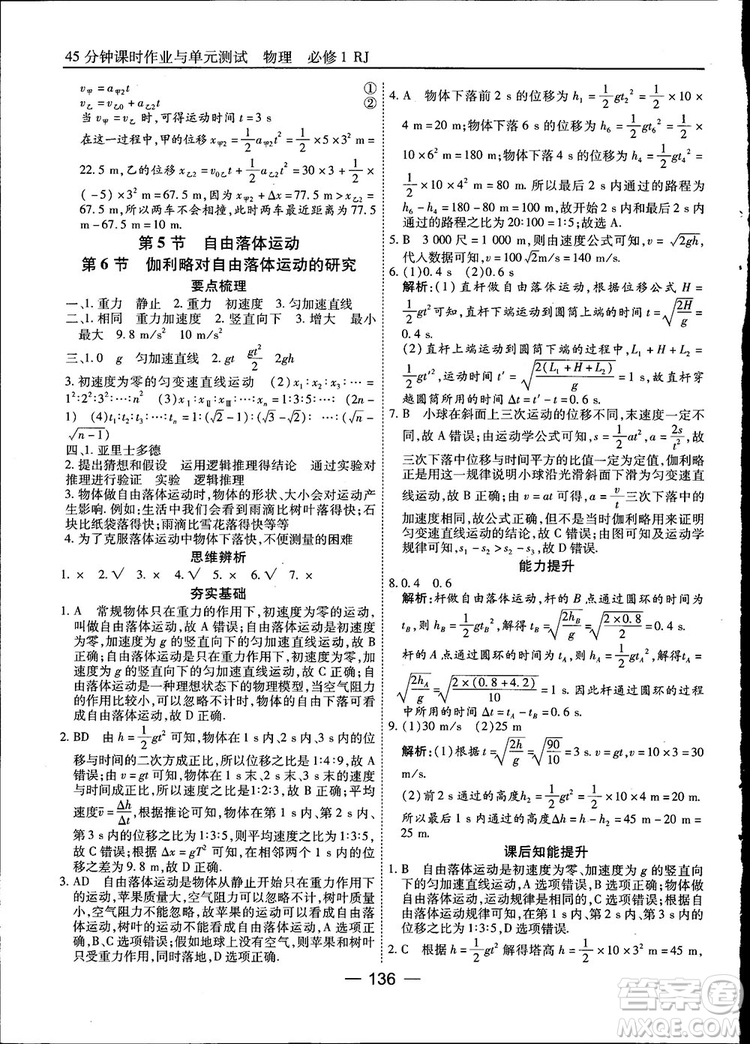 45 分钟课时作业与单元测试 物理 必修 1 RJ
v甲=a甲2t ①
v乙=v乙0+a乙2t ②
当 v甲=v乙 时,可得运动时间 t=3 s
在这一过程中,甲的位移 x甲2=1/2 a甲2t²=1/2×5×3² m=
22.5 m,乙的位移 x乙2=v0乙t+1/2 a乙2t²=30×3+1/2×
(-5)×3² m=67.5 m,因为 x甲2+Δx=77.5 m>x乙2=
67.5 m,所以两车不会相撞,此时两车相距 Δs=77.5 m
-67.5 m=10 m.
第 5 节 自由落体运动
第 6 节 伽利略对自由落体运动的研究
要点梳理
一、1. 重力 静止 2. 重力 初速度 3. 匀加速直线
二、1. 相同 重力加速度 2. 竖直向下 3. 增大 最小
最大 9.8 m/s² 10 m/s²
三、1. 0 g 匀加速直线 2. gt gt²/2 2gh
3. 初速度为零的匀变速直线运动 (2)x₁:x₂:x₃:…=
1²:2²:3²:…:n² (3)xⅠ:xⅡ:xⅢ:…=1:3:5:…:
(2n-1) (4)t₁:t₂:t₃:…tₙ=1:(√2-1):(√3-√2):…:(√n-
√(n-1))
四、1. 亚里士多德
2. 提出猜想和假设 运用逻辑推理得结论 通过实验对
推理进行验证 实验 逻辑推理
3. 物体做自由落体运动时,物体的形状、大小对运动产
生影响. 日常生活中我们会看到雨滴比树叶落得快;石
块比纸袋落得快;雨滴比雪花落得快等等
4. 为了克服落体运动中物体下落快,不便测量的困难
思维辨析
1. × 2. √ 3. √ 4. √ 5. √ 6. √ 7. ×
夯实基础
1. A 常规物体只在重力的作用下,初速度为零的运动,
叫做自由落体运动,故 A 错误;自由落体运动是初速度
为零,加速度为 g 的竖直向下的匀加速直线运动,故 B
正确;自由落体运动是初速度为零,加速度为 g 的竖直
向下的匀加速直线运动,故 C 正确;自由落体运动是一
自由落体运动是一种理想状态下的物理模型,当空气阻力
的作用比较小,可以忽略不计时,物体的自由下落可以
看成自由落体运动,故 D 正确.
2. BD 由 h=1/2 gt² 可知,物体在 1 s 内、2 s 内、3 s 内的位
移与时间的二次方成正比,所以位移之比是 1:4:9,故
A 错误;由 v=gt 可知,物体在 1 s 末、2 s 末、3 s 末的速度
与时间成正比,所以速度之比是 1:2:3,故 B 正确;根
据平均速度 v̄=Δh/Δt,根据推论可知,物体在第 1 s 内、第 2 s 内、
第 3 s 内的位移之比为 1:3:5,则平均速度之比为 1:3:5,
故 C 错误;根据 Δx=gT² 可知,物体在第 1 s 内、第 2 s 内的
位移之差为 9.8 m,故 D 正确.
3. AD 自由落体运动是物体从静止开始只在重力作用下
的运动,苹果质量大,空气阻力可忽略不计,树叶质量
小,空气阻力不能忽略,故苹果的运动可以看成自由落
体运动,苹果先落地,故 A 选项正确,B 选项错误,C 选
项错误;假如地球上没有空气,则苹果和树叶不受空气
阻力,同时落地,故 D 选项正确.
4. A 物体下落前 2 s 的位移为 h₁=1/2 gt₂²=1/2×10×
4 m=20 m;物体下落 6 s 的位移为 h₆=1/2 gt₆²=1/2×
10×6² m=180 m;物体下落 4 s 的位移为 h₄=1/2 gt₄²=
1/2×10×4² m=80 m. 所以最后 2 s 内通过的路程为
h₆-h₄=180 m-80 m=100 m,所以前 2 s 和最后 2 s 内
通过的路程之比为 20:100=1:5,故选 A.
5. B 3 000 尺=1 000 m,则由速度公式可知,v=√2gh,
代入数据可知,v=100√2 m/s=140 m/s.
6. (1)0.4 s (2)0.6 s
解析:(1)直杆做自由落体运动,根据位移公式 H=
1/2 gt² 可知,直杆下端运动到圆筒上端的时间 t=√(2H/g)=
0.4 s.
(2)直杆上端运动到圆筒下端的过程中,L₁+H+L₂=
1/2 gt'²,运动时间 t'=√(2(L₁+H+L₂)/g)=1 s,则直杆穿
越圆筒所用的时间 Δt=t'-t=0.6 s.
7. B 小球在斜面上三次运动的位移不同,末速度一定不
同,故 A 错误;由运动学公式可知,s=1/2 at²,a=2s/t²,故
三次下落中位移与时间平方的比值一定为定值,伽利略
正是用这一规律说明小球沿光滑斜面下滑为匀变速直
线运动,故 B 正确;由 v=at 可得,a=v/t 三次下落中的
加速度相同,故公式正确,但是不是当时伽利略用来证明
匀变速直线运动的结论,故 C 错误;由图及运动学规律
可知,s₁-s₂>s₂-s₃,故 D 错误.
能力提升
8. 0.4 0.6
解析:杆做自由落体运动,杆的 B 点通过圆环的时间为
tB,则 hB=1/2 gtB²,tB=√(2hB/g)=√(2×0.8/10) s=0.4 s.
杆的 A 点通过圆环的时间为 tA,则 hA=1/2 gtA²,tA=
√(2hA/g)=√(2×(0.8+4.2)/10) s=1 s. 因此杆通过圆环的过程
中所需时间 Δt=tA-tB=0.6 s.
9. (1)30 m/s (2)25 m
解析:(1)根据 t=√(2h/g)=√(90/10) s=3 s,v=gt=30 m/s.
(2)前 2 s 内的位移 h₂=1/2 gt²=1/2×10×2² m=20 m,
所以最后 1 s 内通过的高度为 Δh=h-h₂=45 m-20 m=
25 m.
课后知能提升
1. B 自由落体运动是初速度为零、加速度为 g 的竖直向
下的匀加速直线运动,A 选项错误,B 选项正确;根据自
由落体运动规律可知,在运动规律是一样的,C 选项错误,
D 选项错误.
2. C 根据 h=1/2 gt² 解得塔高 h=1/2×10×3² m=45 m,
136
答案圈
MXQE.COM